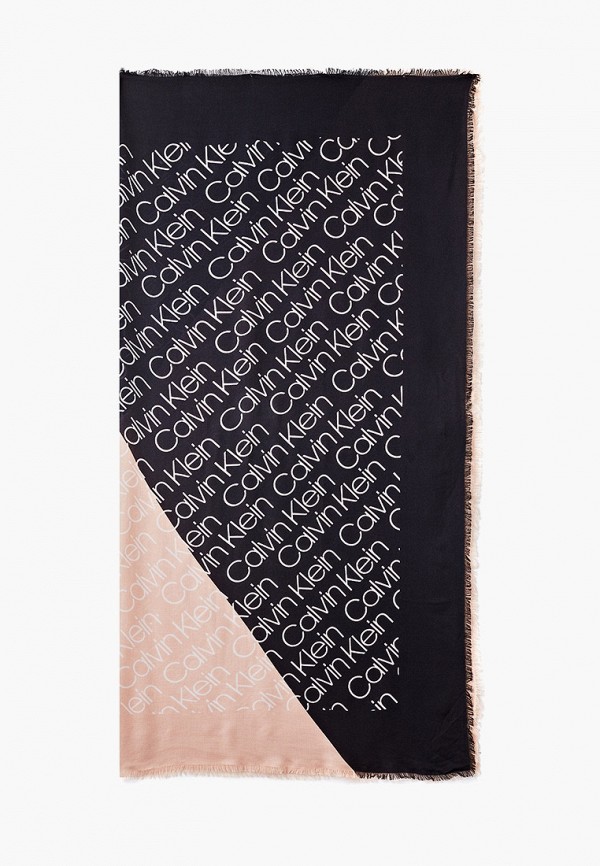 Klein
Calvin Kle
Klein Calvin Kle
Calvin Klein Calvin
Calvin Klein Calvin Klein
Calvin Klein Calvin Klein
Calvin Klein Calvin Klein
Calvin Klein Calvin Klein
Calvin Klein Calvin Klein
Calvin Klein Calvin Klein
Calvin Klein Calvin Klein
Calvin Klein Calvin Klein
Calvin Klein Calvin Klein
Calvin Klein
Calvin Klein